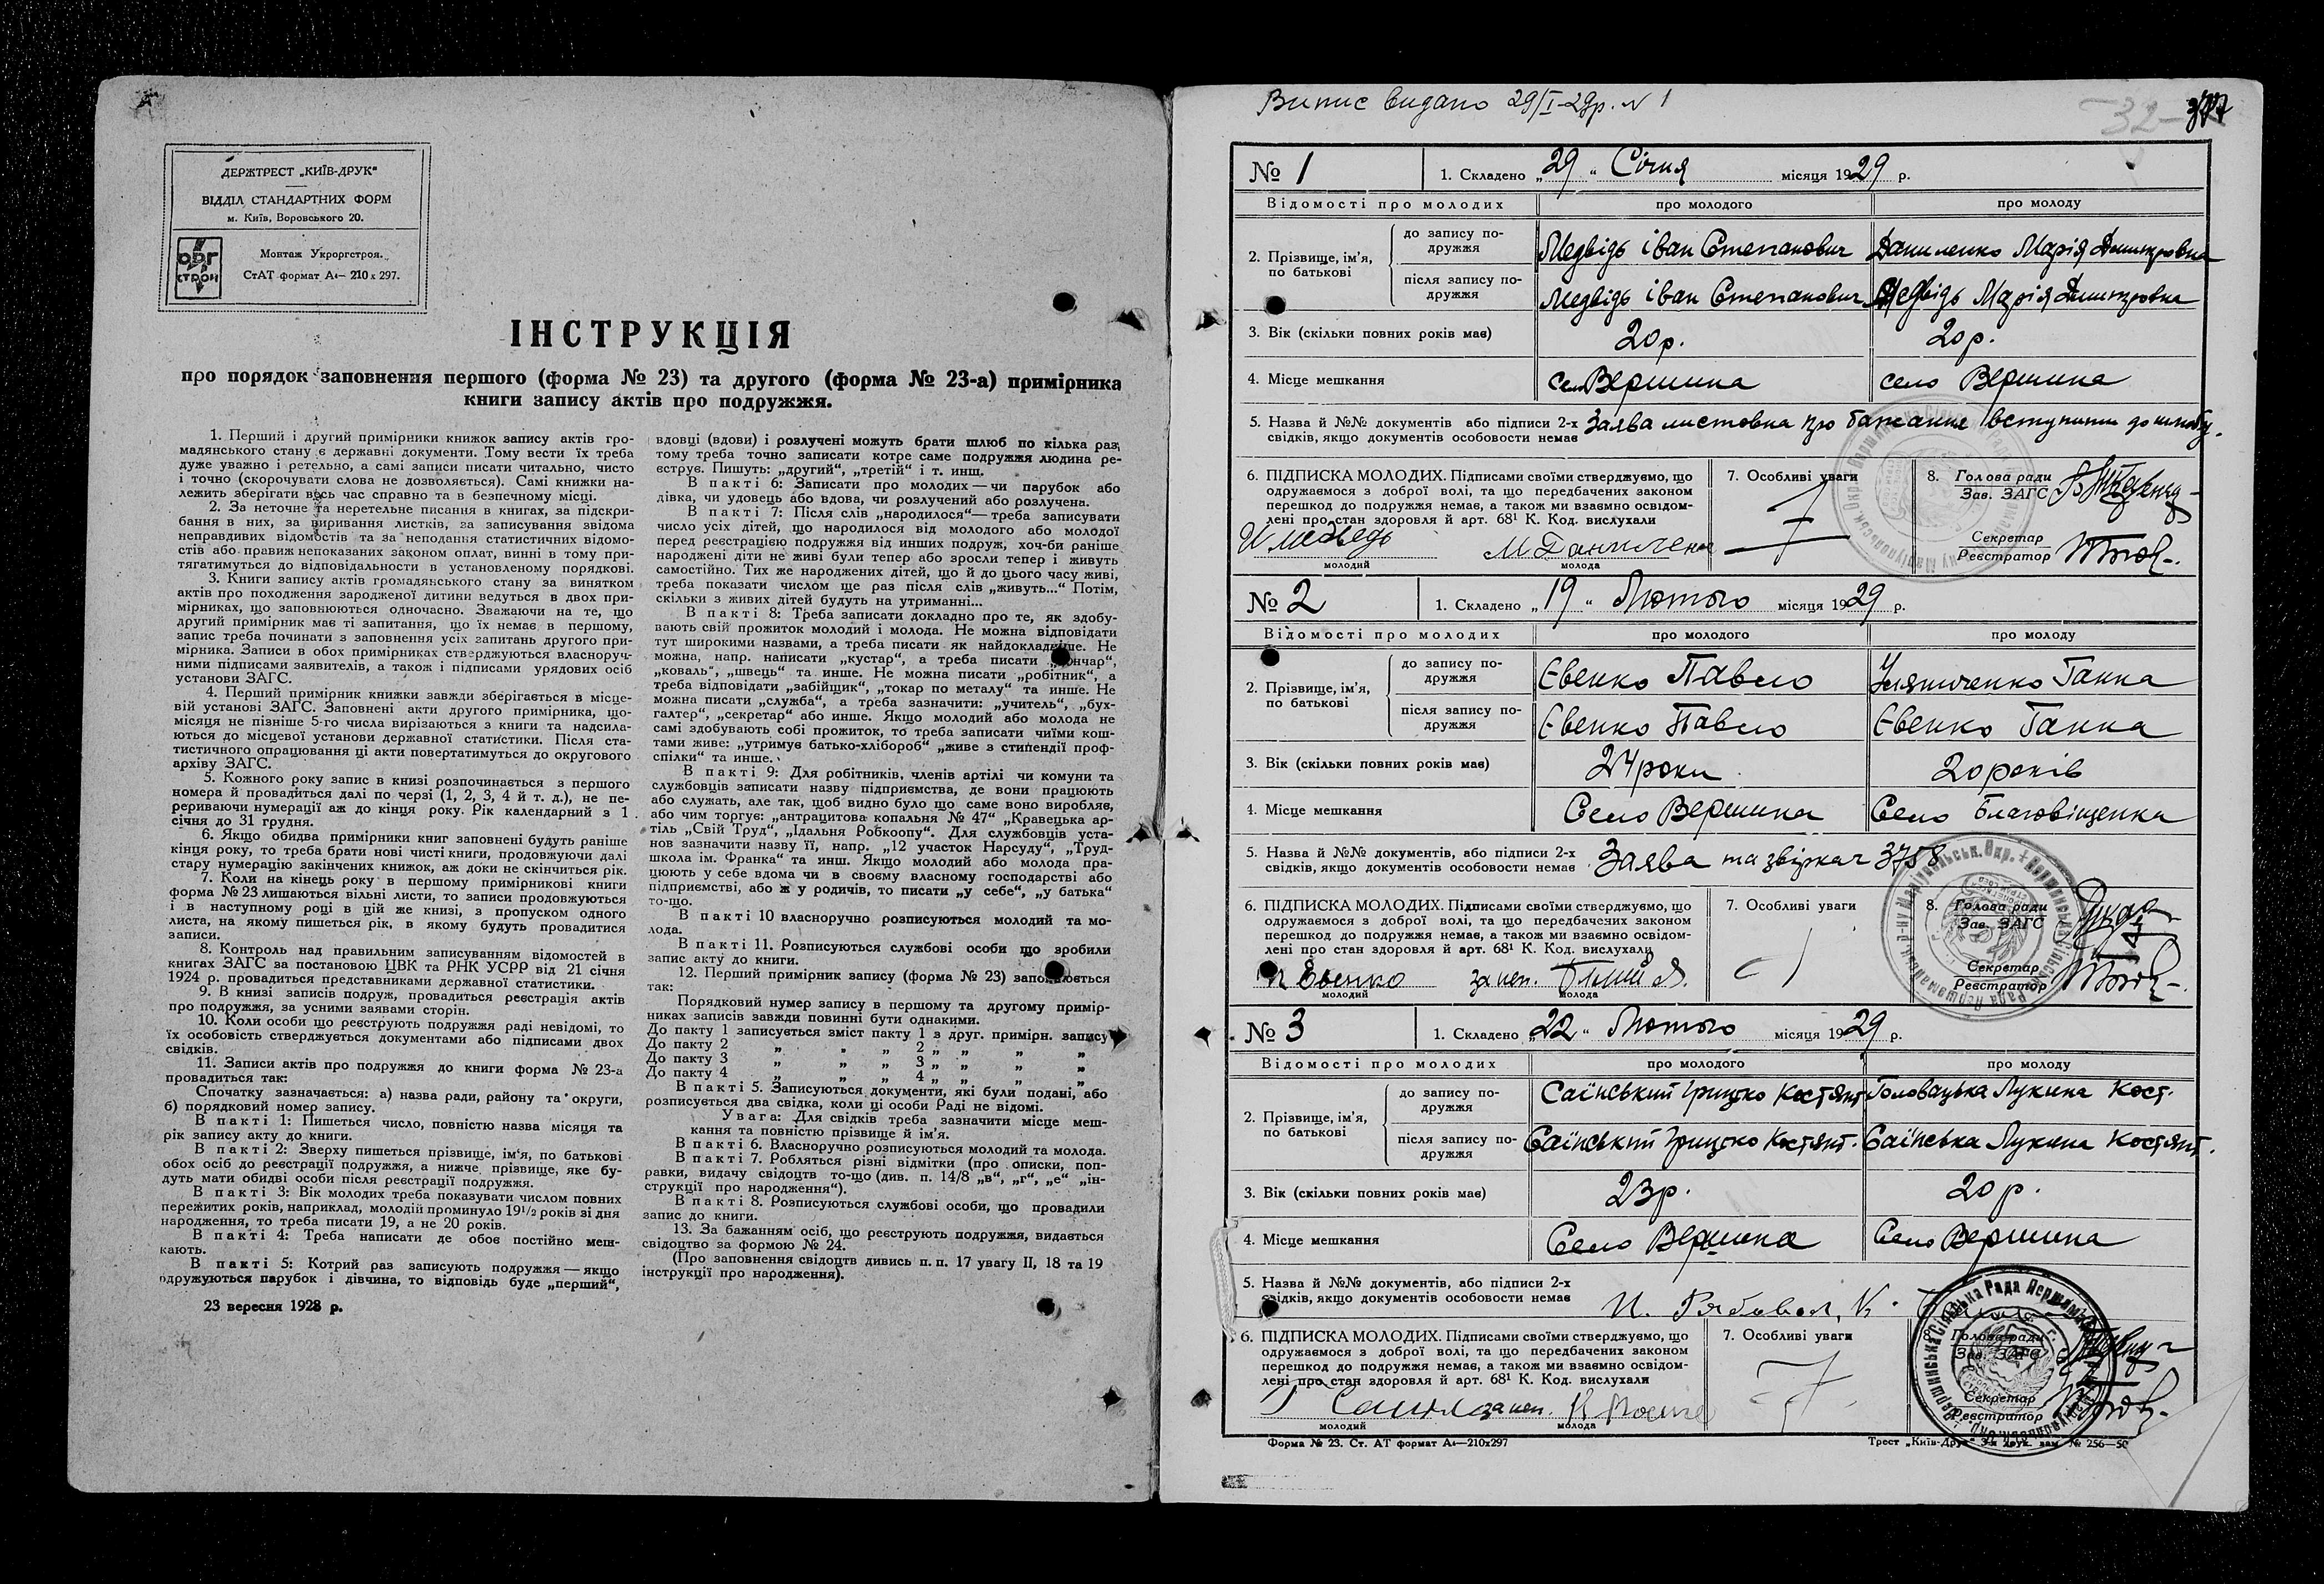 ДЕРЖТРЕСТ „КИЇВ-ДРУК“
ВІДДІЛ СТАНДАРТНИХ ФОРМ
м. Київ, Воровського 20.
ОРГ
СТРОЙ
Монтаж Укроргстроя.
СтАТ формат А4— 210 x 297.
ІНСТРУКЦІЯ
про порядок заповнення першого (форма № 23) та другого (форма № 23-а) примірника
книги запису актів про подружжя.
1. Перший і другий примірники книжок запису актів гро-
мадянського стану є державні документи. Тому вести їх треба
дуже уважно і ретельно, а самі записи писати читально, чисто
і точно (скорочувати слова не дозволяється). Самі книжки на-
лежить зберігати весь час справно та в безпечному місці.
2. За неточне та неретельне писання в книгах, за підскри-
бання в них, за виривання листків, за записування звідома
неправдивих відомостів та за неподання статистичних відомо-
стів або правиж непоказаних законом оплат, винні в тому при-
тягатимуться до відповідальности в установленому порядкові.
3. Книги запису актів громадянського стану за винятком
актів про походження зародженої дитини ведуться в двох при-
мірниках, що заповнюються одночасно. Зважаючи на те, що
другий примірник має ті запитання, що їх немає в першому,
запис треба починати з заповнення усіх запитань другого при-
мірника. Записи в обох примірниках стверджуються власноруч-
ними підписами заявителів, а також і підписами урядових осіб
установи ЗАГС.
4. Перший примірник книжки завжди зберігається в місце-
вій установі ЗАГС. Заповнені акти другого примірника, що-
місяця не пізніше 5-го числа вирізаються з книги та надсила-
ються до місцевої установи державної статистики. Після ста-
тистичного опрацювання ці акти повертатимуться до округового
архіву ЗАГС.
5. Кожного року запис в книзі розпочинається з першого
номера й провадиться далі по черзі (1, 2, 3, 4 й т. д.), не пе-
рериваючи нумерації аж до кінця року. Рік календарний з 1
січня до 31 грудня.
6. Якщо обидва примірники книг заповнені будуть раніше
кінця року, то треба брати нові чисті книги, продовжуючи далі
стару нумерацію закінчених книжок, аж доки не скінчиться рік.
7. Коли на кінець року в першому примірникові книги
форма № 23 лишаються вільні листи, то записи продовжуються
і в наступному році в цій же книзі, з пропуском одного
листа, на якому пишеться рік, в якому будуть провадитися
записи.
8. Контроль над правильним записуванням відомостей в
книгах ЗАГС за постановою ЦВК та РНК УСРР від 21 січня
1924 р. провадиться представниками державної статистики.
9. В книзі записів подруж, провадиться реєстрація актів
про подружжя, за усними заявами сторін.
10. Коли особи що реєструють подружжя раді невідомі, то
їх особовість стверджується документами або підписами двох
свідків.
11. Записи актів про подружжя до книги форма № 23-а
провадиться так:
Спочатку зазначається: а) назва ради, району та округи,
б) порядковий номер запису.
В пакті 1: Пишеться число, повністю назва місяця та
рік запису акту до книги.
В пакті 2: Зверху пишеться прізвище, ім‘я, по батькові
обох осіб до реєстрації подружжя, а нижче прізвище, яке бу-
дуть мати обидві особи після реєстрації подружжя.
В пакті 3: Вік молодих треба показувати числом повних
пережитих років, наприклад, молодій проминуло 19½ років зі дня
народження, то треба писати 19, а не 20 років.
В пакті 4: Треба написати де обоє постійно меш-
кають.
В пакті 5: Котрий раз записують подружжя — якщо
одружуються парубок і дівчина, то відповідь буде „перший“,
23 вересня 1928 р.
вдовці (вдови) і розлучені можуть брати шлюб по кілька раз,
тому треба точно записати котре саме подружжя людина ре-
єструє. Пишуть: „другий“, „третій“ і т. инш.
В пакті 6: Записати про молодих — чи парубок або
дівка, чи удовець або вдова, чи розлучений або розлучена.
В пакті 7: Після слів „народилося“— треба записувати
число усіх дітей, що народилося від молодого або молодої
перед реєстрацією подружжя від инших подруж, хоч-би раніше
народжені діти не живі були тепер або зросли тепер і живуть
самостійно. Тих же народжених дітей, що й до цього часу живі,
треба показати числом ще раз після слів „живуть...“ Потім,
скільки з живих дітей будуть на утриманні...
В пакті 8: Треба записати докладно про те, як здобу-
вають свій прожиток молодий і молода. Не можна відповідати
тут широкими назвами, а треба писати як найдокладніше. Не
можна, напр. написати „кустар“, а треба писати „гончар“,
„коваль“, „швець“ та инше. Не можна писати „робітник“, а
треба відповідати „забійщик“, „токар по металу“ та инше. Не
можна писати „служба“, а треба зазначити: „учитель“, „бух-
галтер“, „секретар“ або инше. Якщо молодий або молода не
самі здобувають собі прожиток, то треба записати чиїми кош-
тами живе: „утримує батько-хлібороб“ „живе з стипендії проф-
спілки“ та инше.
В пакті 9: Для робітників, членів артілі чи комуни та
службовців записати назву підприємства, де вони працюють
або служать, але так, щоб видно було що саме воно виробляє,
або чим торгує: „антрацитова копальня № 47“ „Кравецька ар-
тіль „Свій Труд“, „Їдальня Робкоопу“. Для службовців уста-
нов зазначити назву її, напр. „12 участок Нарсуду“, „Труд-
школа ім. Франка“ та инш. Якщо молодий або молода пра-
цюють у себе вдома чи в своєму власному господарстві або
підприємстві, або ж у родичів, то писати „у себе“, „у батька“
то-що.
В пакті 10 власноручно розписуються молодий та мо-
лода.
В пакті 11. Розписуються службові особи що зробили
запис акту до книги.
12. Перший примірник запису (форма № 23) заповнюється
так:
Порядковий нумер запису в першому та другому примір-
никах записів завжди повинні бути однакими.
До пакту 1 записується зміст пакту 1 з друг. примірн. запису
До пакту 2 „ „ „ 2 „ „ „ „
До пакту 3 „ „ „ 3 „ „ „ „
До пакту 4 „ „ „ 4 „ „ „ „
В пакті 5. Записуються документи, які були подані, або
розписується два свідка, коли ці особи Раді не відомі.
Увага: Для свідків треба зазначити місце меш-
кання та повністю прізвище й ім‘я.
В пакті 6. Власноручно розписуються молодий та молода.
В пакті 7. Робляться різні відмітки (про описки, поп-
равки, видачу свідоцтв то-що (див. п. 14/8 „в“, „г“, „е“ „ін-
струкції про народження“).
В пакті 8. Розписуються службові особи, що провадили
запис до книги.
13. За бажанням осіб, що реєструють подружжя, видається
свідоцтво за формою № 24.
(Про заповнення свідоцтв дивись п. п. 17 увагу II, 18 та 19
інструкції про народження).
Випис видано 29/I-29р. N 1
32
№ 1 1. Складено „29“ Січня місяця 1929 р.
Відомості про молодих про молодого про молоду
2. Прізвище, ім‘я, по батькові
до запису по-дружжя Медвідь Іван Степанович Даниленко Марія Дмитровна
після запису по-дружжя Медвідь Іван Степанович Медвідь Марія Дмитровна
3. Вік (скільки повних років має) 20 р. 20 р.
4. Місце мешкання Село Вершина село Вершина
5. Назва й №№ документів або підписи 2-х Заява листовна про бажання вступити до шлюбу.
свідків, якщо документів особовости немає
6. ПІДПИСКА МОЛОДИХ. Підписами своїми стверджуємо, що 7. Особливі уваги 8. Голова ради
одружаємося з доброї волі, та що передбачених законом Зав. ЗАГС
перешкод до подружжя немає, а також ми взаємно освідом-
лені про стан здоровля й арт. 68¹ К. Код. вислухали Секретар
И Медведь М Даниленко Реєстратор
молодий молода
№ 2 1. Складено „19“ Лютого місяця 1929 р.
Відомості про молодих про молодого про молоду
2. Прізвище, ім‘я, по батькові
до запису по-дружжя Євенко Павло Ганна
після запису по-дружжя Євенко Павло Євенко Ганна
3. Вік (скільки повних років має) 24 роки 20 років
4. Місце мешкання Село Вершина Село Благовіщенка
5. Назва й №№ документів, або підписи 2-х Заява та 3758
свідків, якщо документів особовости немає
6. ПІДПИСКА МОЛОДИХ. Підписами своїми стверджуємо, що 7. Особливі уваги 8. Голова ради
одружаємося з доброї волі, та що передбачених законом Зав. ЗАГС
перешкод до подружжя немає, а також ми взаємно освідом-
лені про стан здоровля й арт. 68¹ К. Код. вислухали Секретар
П Евенко за неп. Реєстратор
молодий молода
№ 3 1. Складено „22“ Лютого місяця 1929 р.
Відомості про молодих про молодого про молоду
2. Прізвище, ім‘я, по батькові
до запису по-дружжя Саїнський Грицько Костянт. Головацька Лукина Кост.
після запису по-дружжя Саїнський Грицько Костянт. Саїнська Лукина Костянт.
3. Вік (скільки повних років має) 23 р. 20 р.
4. Місце мешкання Село Вершина Село Вершина
5. Назва й №№ документів, або підписи 2-х
свідків, якщо документів особовости немає И. Рябовол, К.
6. ПІДПИСКА МОЛОДИХ. Підписами своїми стверджуємо, що 7. Особливі уваги 8. Голова ради
одружаємося з доброї волі, та що передбачених законом Зав. ЗАГС
перешкод до подружжя немає, а також ми взаємно освідом-
лені про стан здоровля й арт. 68¹ К. Код. вислухали Секретар
за неп. Реєстратор
молодий молода
Форма № 23. Ст. АТ формат А4—210x297 Трест „Київ-Друк“ 3-я друк. зам. № 256—50